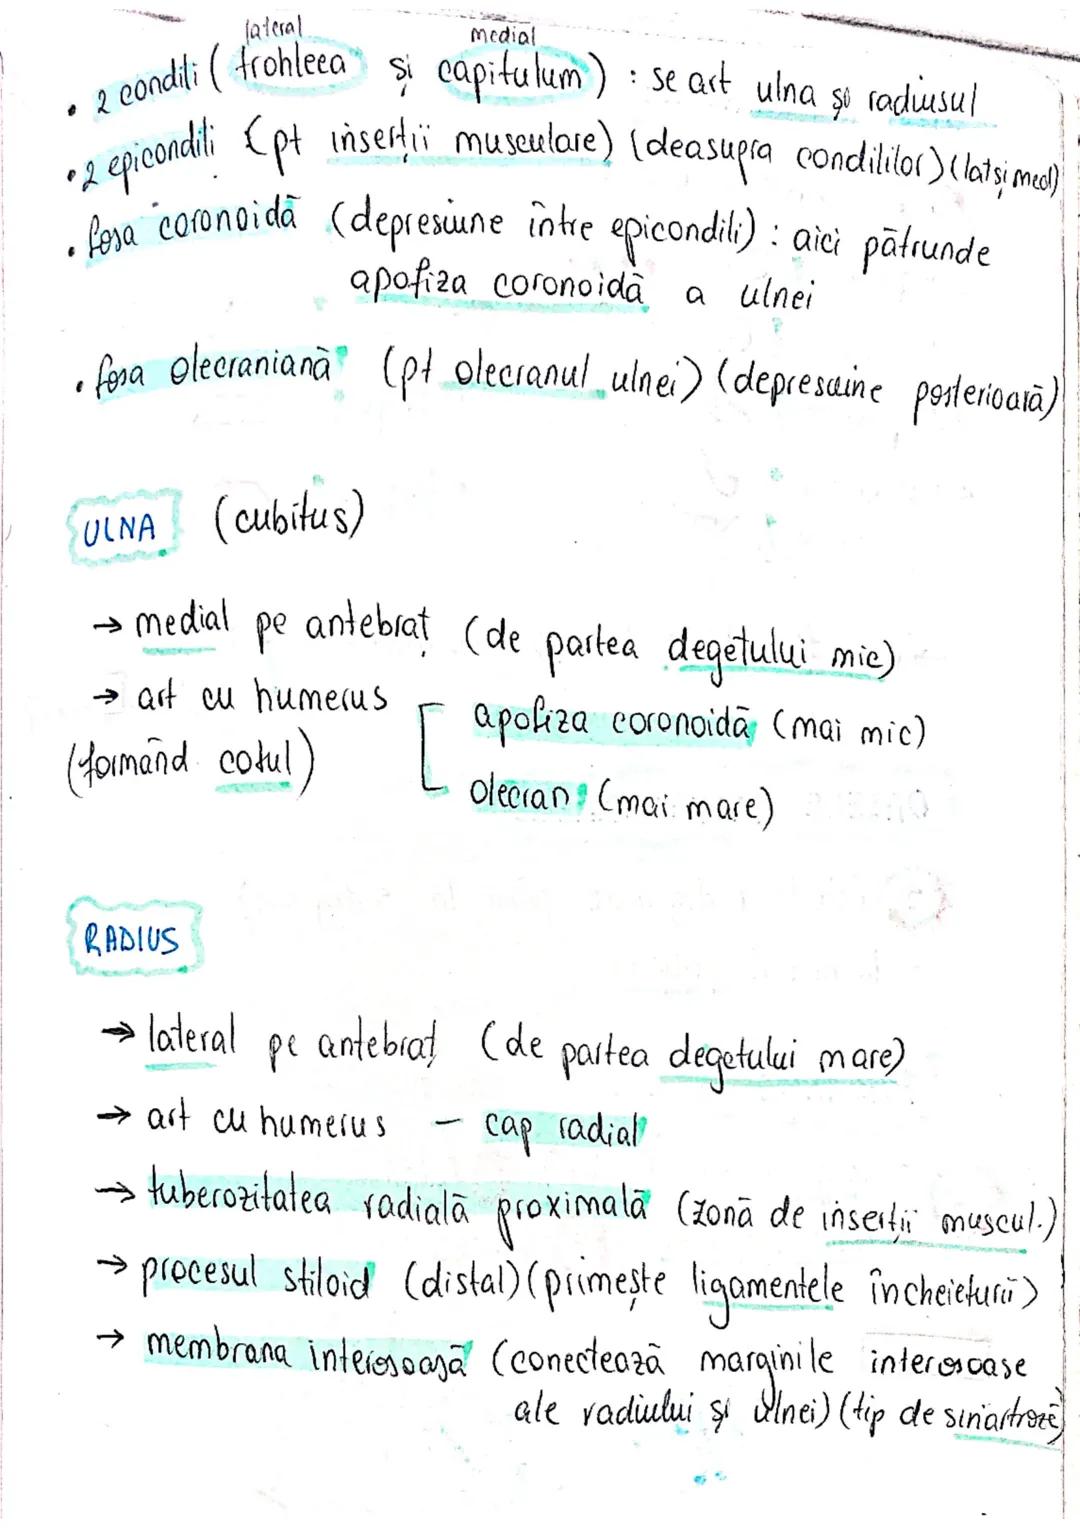 lateral medial
• 2 condili (trohleea și capitulum) : se art ulna și radiusul
• 2 epicondili (pt inserții musculare) (deasupra condililor) (lat și med)
• fosa coronoidă (depresiune între epicondili) : aici pătrunde
apofiza coronoidă a ulnei
• fosa olecraniană (pt olecranul ulnei) (depresiune posterioară)
ULNA (cubitus)
→ medial pe antebraț (de partea degetului mic)
→ art cu humerus [ apofiza coronoidă (mai mic)
(formând cotul) olecran (mai mare)
RADIUS
→ lateral pe antebraț (de partea degetului mare)
→ art cu humerus – cap radial
→ tuberozitatea radială proximală (zonă de inserții muscul.)
→ procesul stiloid (distal) (primește ligamentele încheieturii)
→ membrana interosoasă (conectează marginile interosoase
ale radiului și ulnei) (tip de sinartroze)